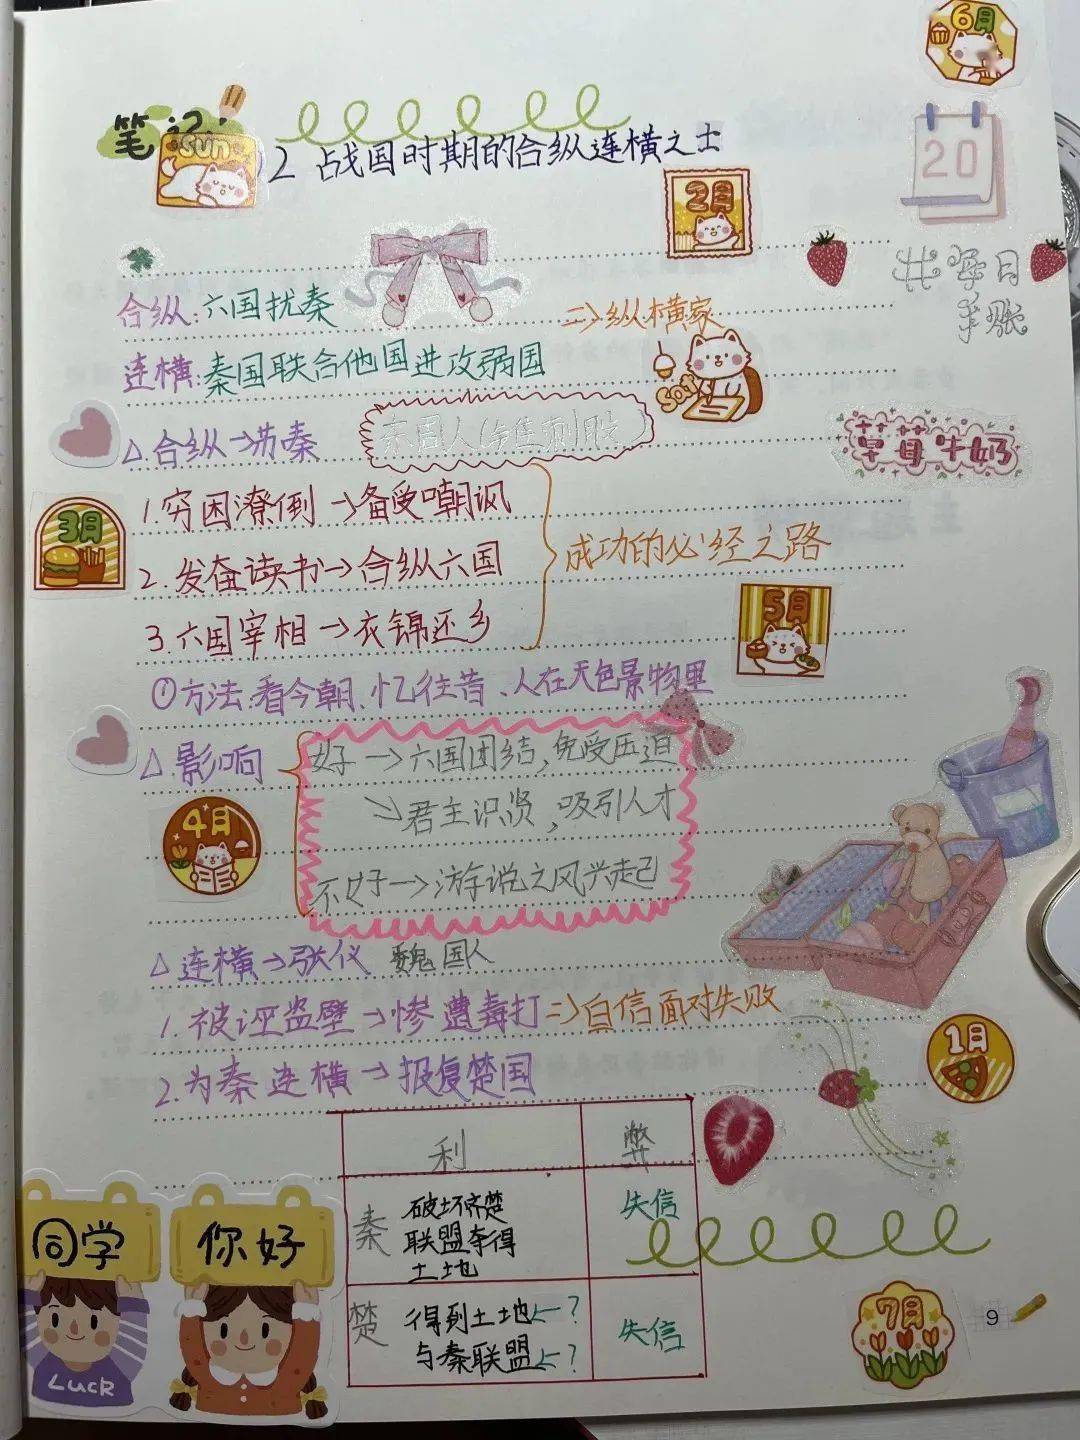 6月
笔记
sun
2 战国时期的合纵连横之士
20
2月
#每日
手账
合纵:六国扰秦
=>纵横家
连横:秦国联合他国进攻弱国
草莓牛奶
△合纵→苏秦
东周人(
刺股)
3月
1.穷困潦倒→备受嘲讽
2.发奋读书→合纵六国
成功的必经之路
3.六国宰相→衣锦还乡
5月
①方法:看今朝、忆往昔、人在天色景物里
△影响
好→六国团结,免受压迫
↘君主识贤,吸引人才
4月
不好→游说之风兴起
△连横→张仪 魏国人
1.被诬盗壁→惨遭毒打=>自信面对失败
1月
2.为秦连横→报复楚国
利 弊
秦 破坏齐楚 失信
联盟夺得
土地
楚 得到土地←? 失信
与秦联盟←?
同学
你好
Luck
7月
9